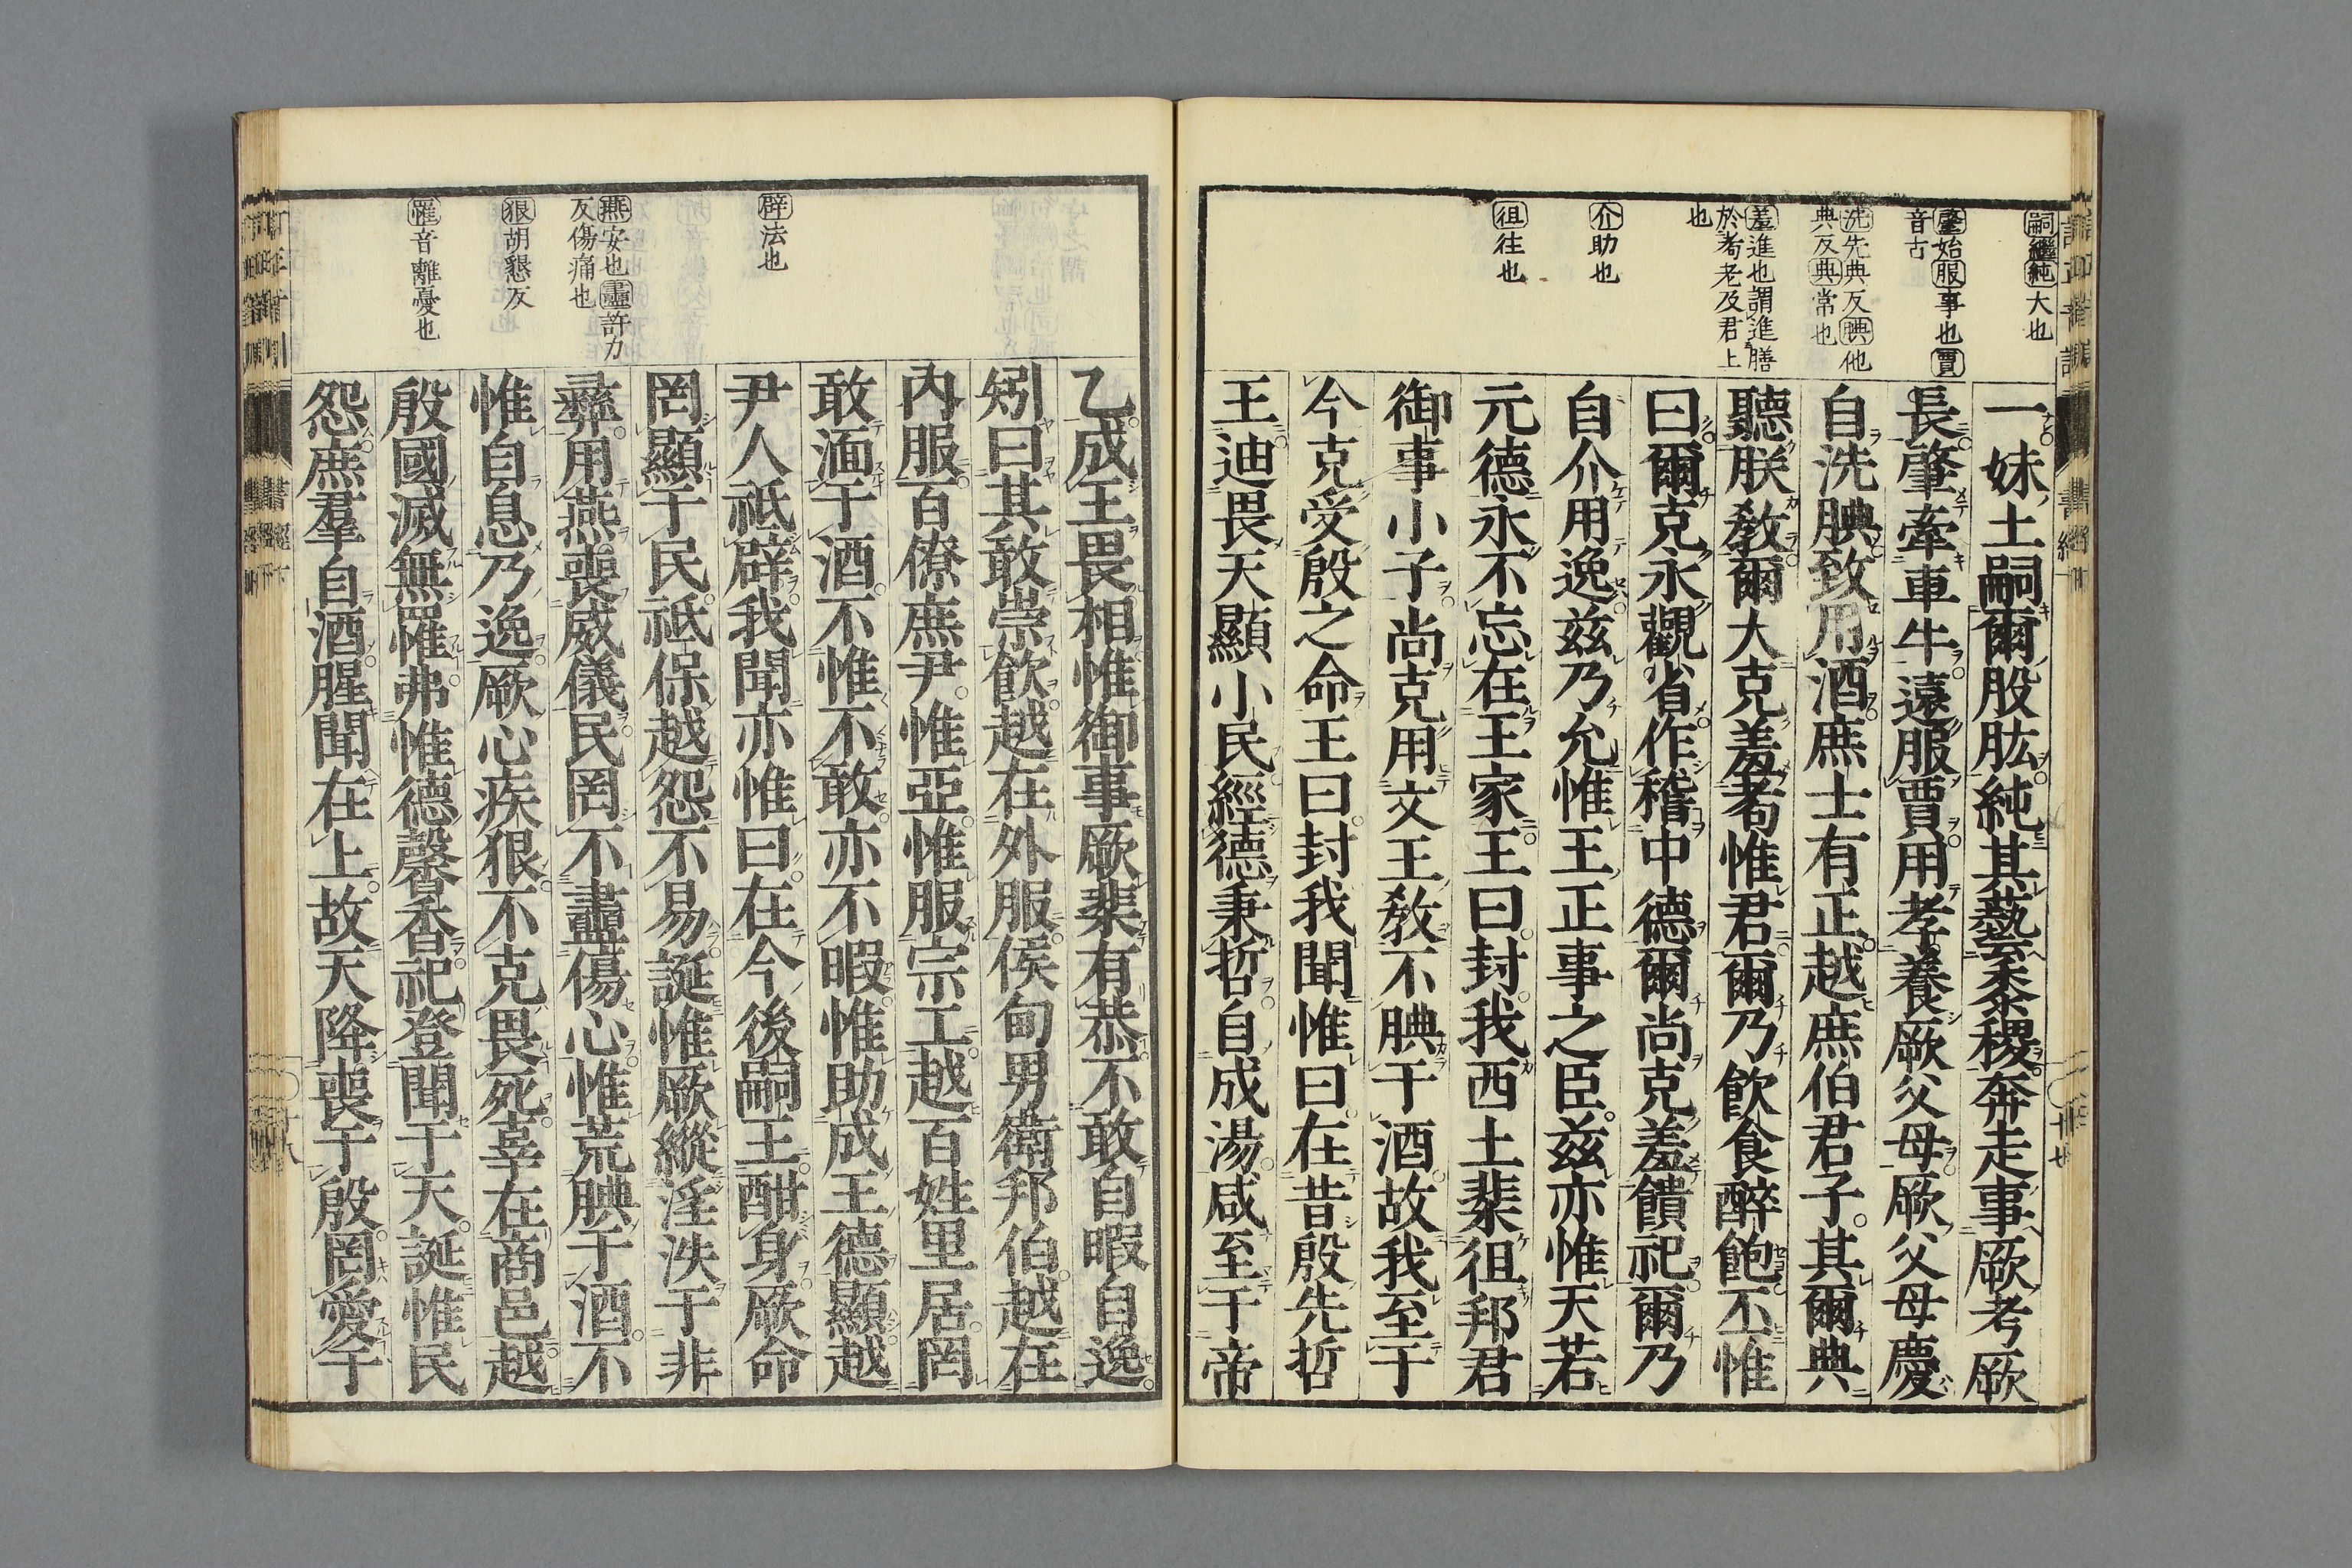 嗣繼純大也
肇始服事也賈
音古
洗先典反腆他
典反典常也
羞進也謂進膳
於耇老及君上
也
介助也
徂往也
一妹土嗣爾股肱純其藝黍稷奔走事厥考厥
長肇牽車牛遠服賈用孝養厥父母厥父母慶
自洗腆致用酒庶士有正越庶伯君子其爾典
聽朕教爾大克羞耇惟君爾乃飲食醉飽丕惟
曰爾克永觀省作稽中德爾尚克羞饋祀爾乃
自介用逸茲乃允惟王正事之臣茲亦惟天若
元德永不忘在王家王曰封我西土棐徂邦君
御事小子尚克用文王教不腆于酒故我至于
今克受殷之命王曰封我聞惟曰在昔殷先哲
王迪畏天顯小民經德秉哲自成湯咸至于帝
辟法也
燕安也衋許力
反傷痛也
狠胡懇反
罹音離憂也
乙成王畏相惟御事厥棐有恭不敢自暇自逸
矧曰其敢崇飲越在外服侯甸男衛邦伯越在
內服百僚庶尹惟亞惟服宗工越百姓里居罔
敢湎于酒不惟不敢亦不暇惟助成王德顯越
尹人祗辟我聞亦惟曰在今後嗣王酣身厥命
罔顯于民祗保越怨不易誕惟厥縱淫泆于非
彝用燕喪威儀民罔不衋傷心惟荒腆于酒不
惟自息乃逸厥心疾狠不克畏死辜在商邑越
殷國滅無罹弗惟德馨香祀登聞于天誕惟民
怨庶羣自酒腥聞在上故天降喪于殷罔愛于